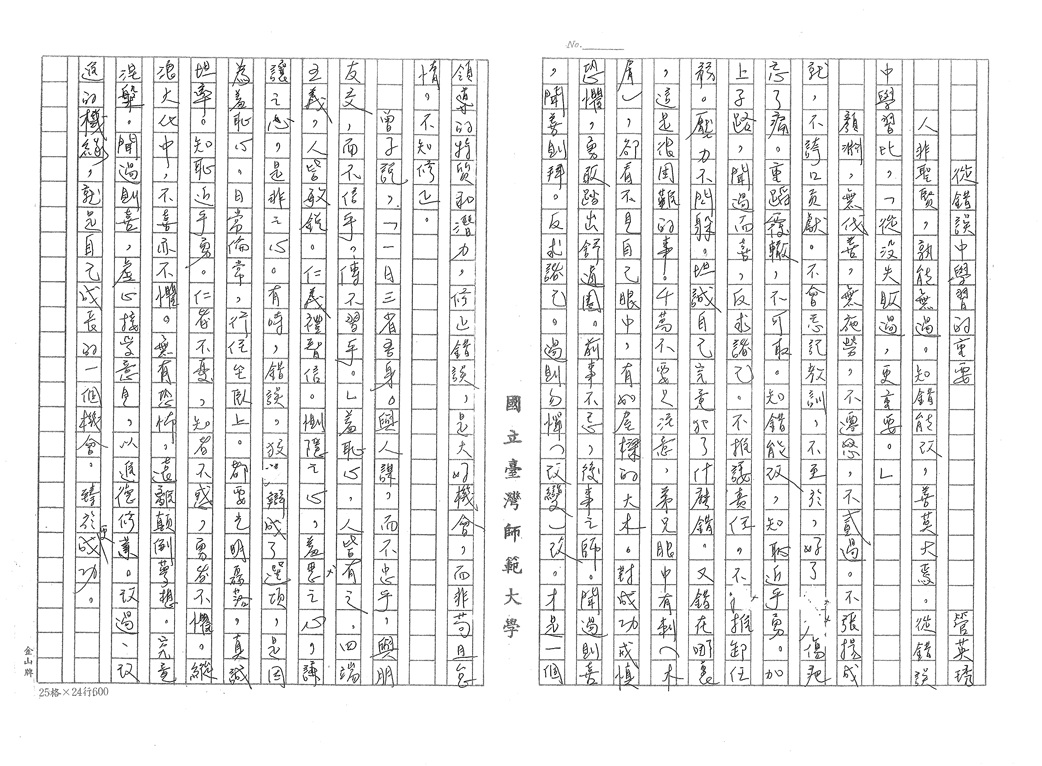 No.
從錯誤中學習的重要
管英琇
人非聖賢，孰能無過。知錯能改，善莫大焉。從錯誤
中學習比，「從沒失敗過，更重要。」
顏淵，無伐善，無施勞，不遷怒，不貳過。不張揚成
就，不誇口貢獻。不會忘記教訓，不至於，好了傷疤
忘了痛。重蹈覆轍，不可取。知錯能改，知恥近乎勇。加
上子路，聞過而喜，反求諸己。不推諉責任。不推卸任
務。壓力不閃躲。坦誠自己究竟犯了什麼錯。又錯在哪裏
，這是很困難的事！千萬不要只注意，弟兄眼中有刺（木
屑），卻看不見自己眼中，有的屋樑的大木。對成功戒慎
恐懼，勇敢踏出舒適圈。前事不忘，後事之師。聞過則喜
，聞善則拜。反求諸己。過則勿憚（改變）改。才是一個
領導的特質和潛力，修正錯誤，是大好機會，而非苟且怠
惰，不知修正。
曾子說：「一日三省吾身。與人謀，而不忠乎，與朋
友交，而不信乎，傳不習乎。」羞恥心，人皆有之，四端
主義，人皆敏銳。仁義禮智信。惻隱之心，羞惡之心。謙
讓之心，是非之心。有時，錯誤，狡辯成了選項，是因
為羞恥心。日常倫常，行住坐臥上。都要光明磊落，真誠
坦率。知恥近乎勇。仁者不憂，知者不惑，勇者不懼。縱
浪大化中，不喜亦不懼。無有恐怖，遠離顛倒夢想。究竟
涅槃。聞過則喜，虛心接受意見，以進德修業。改過、改
進的機緣，就是自己成長的一個機會。更臻於成功。
國立臺灣師範大學
25格×24行600
金山牌